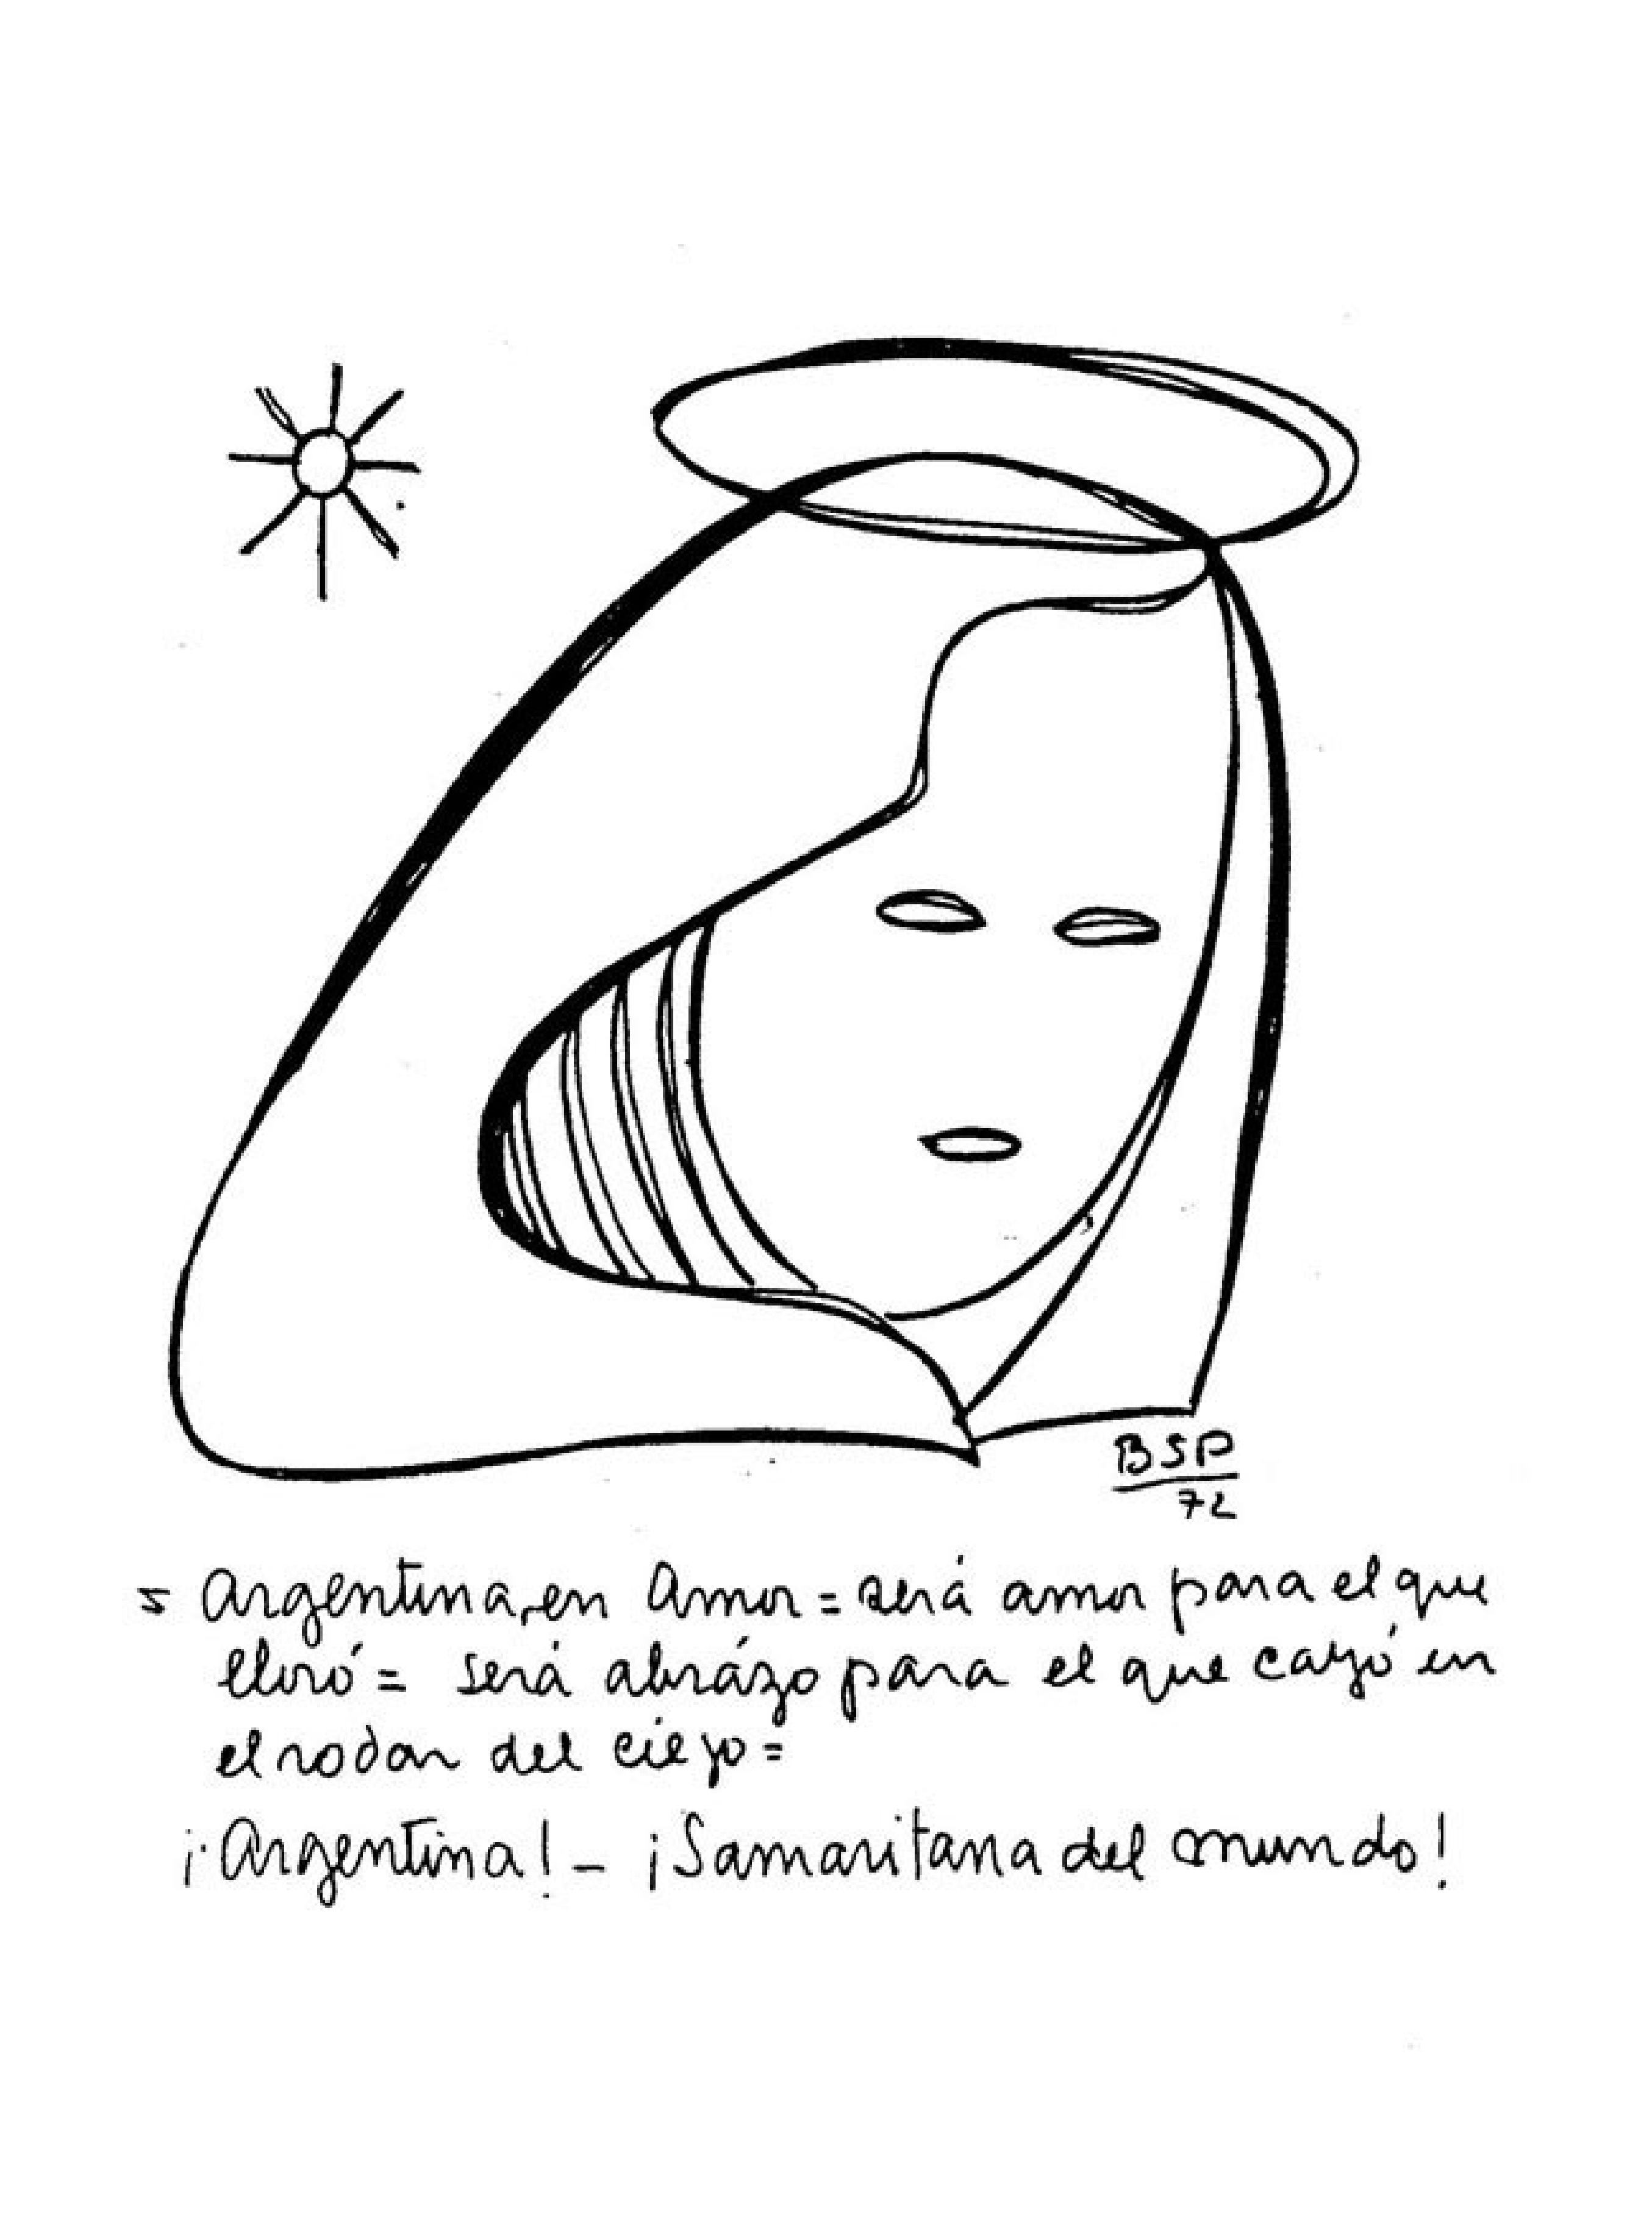 BSP
72
= Argentina, en Amor = será amor para el que
lloró = será abrázo para el que cayó en
el rodar del ciego =
¡Argentina! - ¡Samaritana del mundo!